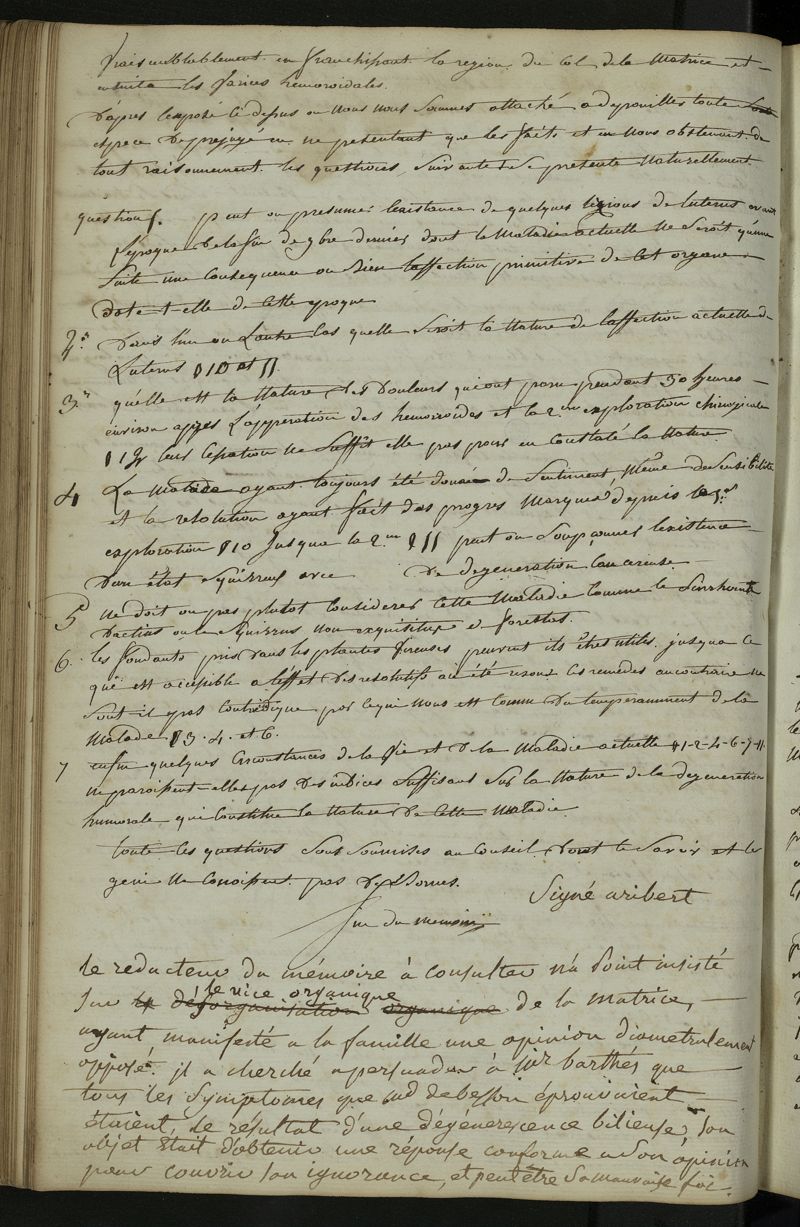 vraisemblablement en franchissant la region du col de la matrice et
ensuite les varices hemoroidales.
D'apres lexposé ci dessus ou nous nous sommes attaché a depouiller toute
espece de prejugé en ne presentant que les faits et en nous abstenant de
tout raisonnement. les questions suivantes se presente naturellement
question 1. peut on presumer lexistence de quelques lezions de luterus avant
l'epoque de la fin de 9bre dernier dont la maladie actuelle ne seroit qu'une
suite une consequence ou bien laffection primitive de cet organe
date t-elle de cette epoque
2. Dans lun ou Lautre cas quelle seroit la nature de laffection actuelle de
Luterus § 10 et 11.
3. quélle est la nature des Douleurs qui ont paru pendant 30 heures
environ apres L'apperation des hemoroides et la 2me exploration chirurgicale
§ 12 leur cessation ne suffit elle pas pour en constaté la nature
4 La malade ayant toujours été douée de sentiment, même de sensibilité
et la resolution ayant fait des progres marqués depuis la 1re
exploration § 10 jusqua la 2me § 11 peut on soupçonner lexistence
d'un état squirreux avec de degeneration cancereuse
5 ne doit on pas plutot considerer cette maladie comme le
D'actius ou le squirrus non exquisitus d forestus.
6. les fondants pris dans les plantes vireuses peuvent ils être utiles. jusqua ce
qui est accessible a l'effet des resolutifs a été ces remedes au contraire ne
sont il pas contrédique par ce qui nous est connu du temperamment de la
malade § 3. 4. et 6.
7 enfin quelques circonstances de la vie et de la maladie actuelle § 1-2-4-6-7-11
ne paroissent-elles pas des indices suffisans sur la nature de la degeneration
humorale qui constitue la nature de cette maladie.
toute ces questions sont soumises au conseil dont le savoir et le
genie ne connoissent pas de Bornes.
Signé aribert
fin du memoire
le redacteur du mémoire à consulter n'a point insisté
le vice organique
sur la désorganisation organique de la matrice,
ayant manifesté a la famille une opinion diametralement
opposé. il a cherché a persuader à Mr barthés que
tous les symptomes que md debesson éprouvaient
étaient, le résultat d'une dégénerescence bilieuse, son
objet était d'obtenir une réponse conforme a son opinion
pour couvrir son ignorance, et peut être sa mauvaise foi.